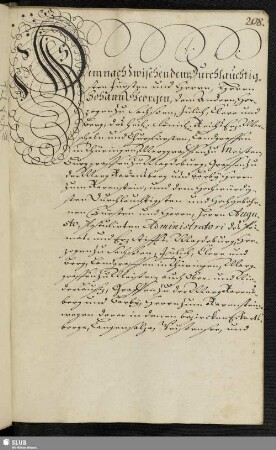 208.
Demnach zwischen dem Durchlauchtig
sten Fürsten und Herrn, Herrn
Johann Georgen, dem Andern, Her
zogen zu Sachsen, Jülich, Cleve und
Berg, des Heil. Röm. Reichs Erz Mar
schalln und Churfürsten, Landgrafen
in Thüringen, Marggrafen zu Meißen,
Burggrafen zu Magdeburg, Grafen zu
der Marck, Ravensberg und Barby, Herrn
zum Ravenstein, und dem Hochwürdig
sten, Durchlauchtigsten und Hochgebohr
nen Fürsten und Herrn, Herrn Augu
sto, Postulirten Administratori des Pri
mat und Erz Stiffts Magdeburg, Her
zogen zu Sachsen, Jülich, Cleve und
Berg, Landgrafen in Thüringen, Marg
grafen zu Meißen, auch Ober und Nie
der Laußitz, Grafen zu der Marck, Ravens
berg und Barby, Herrn zum Ravenstein,
wegen derer in denen
Langensalza,
SLUB